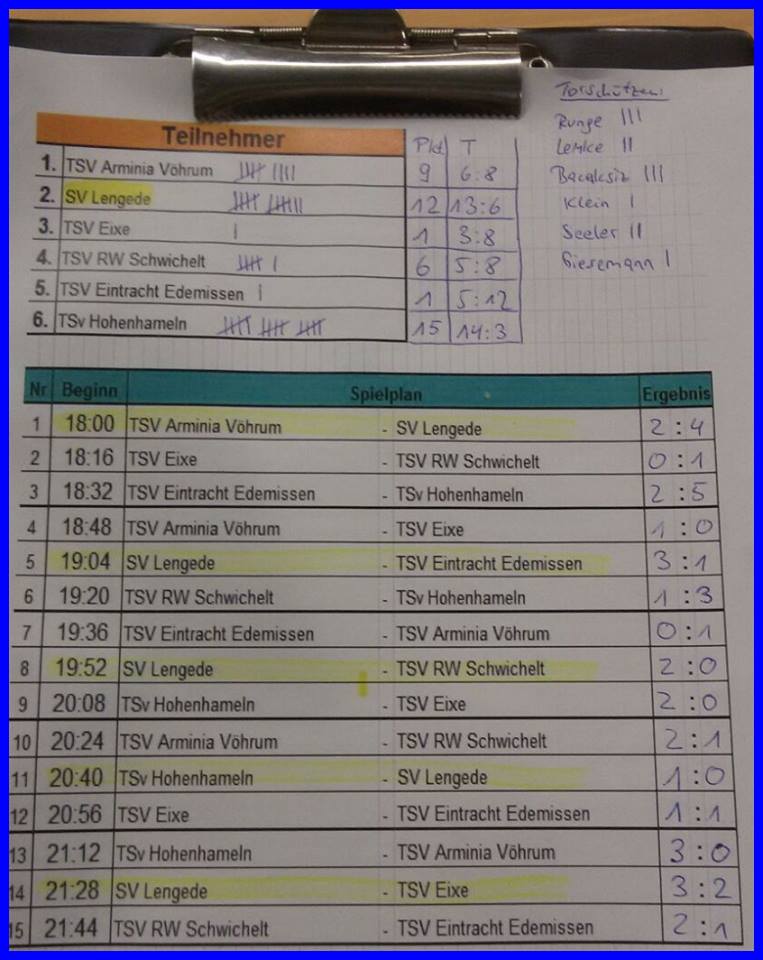 Torschützen:
Runge III
Lemke II
Bacaksiz III
Klein I
Seeler II
Giesemann I
Teilnehmer Pkt T
1. TSV Arminia Vöhrum 9 6:8
2. SV Lengede 12 13:6
3. TSV Eixe 1 3:8
4. TSV RW Schwichelt 6 5:8
5. TSV Eintracht Edemissen 1 5:12
6. TSv Hohenhameln 15 14:3
Nr Beginn Spielplan Ergebnis
1 18:00 TSV Arminia Vöhrum - SV Lengede 2:4
2 18:16 TSV Eixe - TSV RW Schwichelt 0:1
3 18:32 TSV Eintracht Edemissen - TSv Hohenhameln 2:5
4 18:48 TSV Arminia Vöhrum - TSV Eixe 1:0
5 19:04 SV Lengede - TSV Eintracht Edemissen 3:1
6 19:20 TSV RW Schwichelt - TSv Hohenhameln 1:3
7 19:36 TSV Eintracht Edemissen - TSV Arminia Vöhrum 0:1
8 19:52 SV Lengede - TSV RW Schwichelt 2:0
9 20:08 TSv Hohenhameln - TSV Eixe 2:0
10 20:24 TSV Arminia Vöhrum - TSV RW Schwichelt 2:1
11 20:40 TSv Hohenhameln - SV Lengede 1:0
12 20:56 TSV Eixe - TSV Eintracht Edemissen 1:1
13 21:12 TSv Hohenhameln - TSV Arminia Vöhrum 3:0
14 21:28 SV Lengede - TSV Eixe 3:2
15 21:44 TSV RW Schwichelt - TSV Eintracht Edemissen 2:1